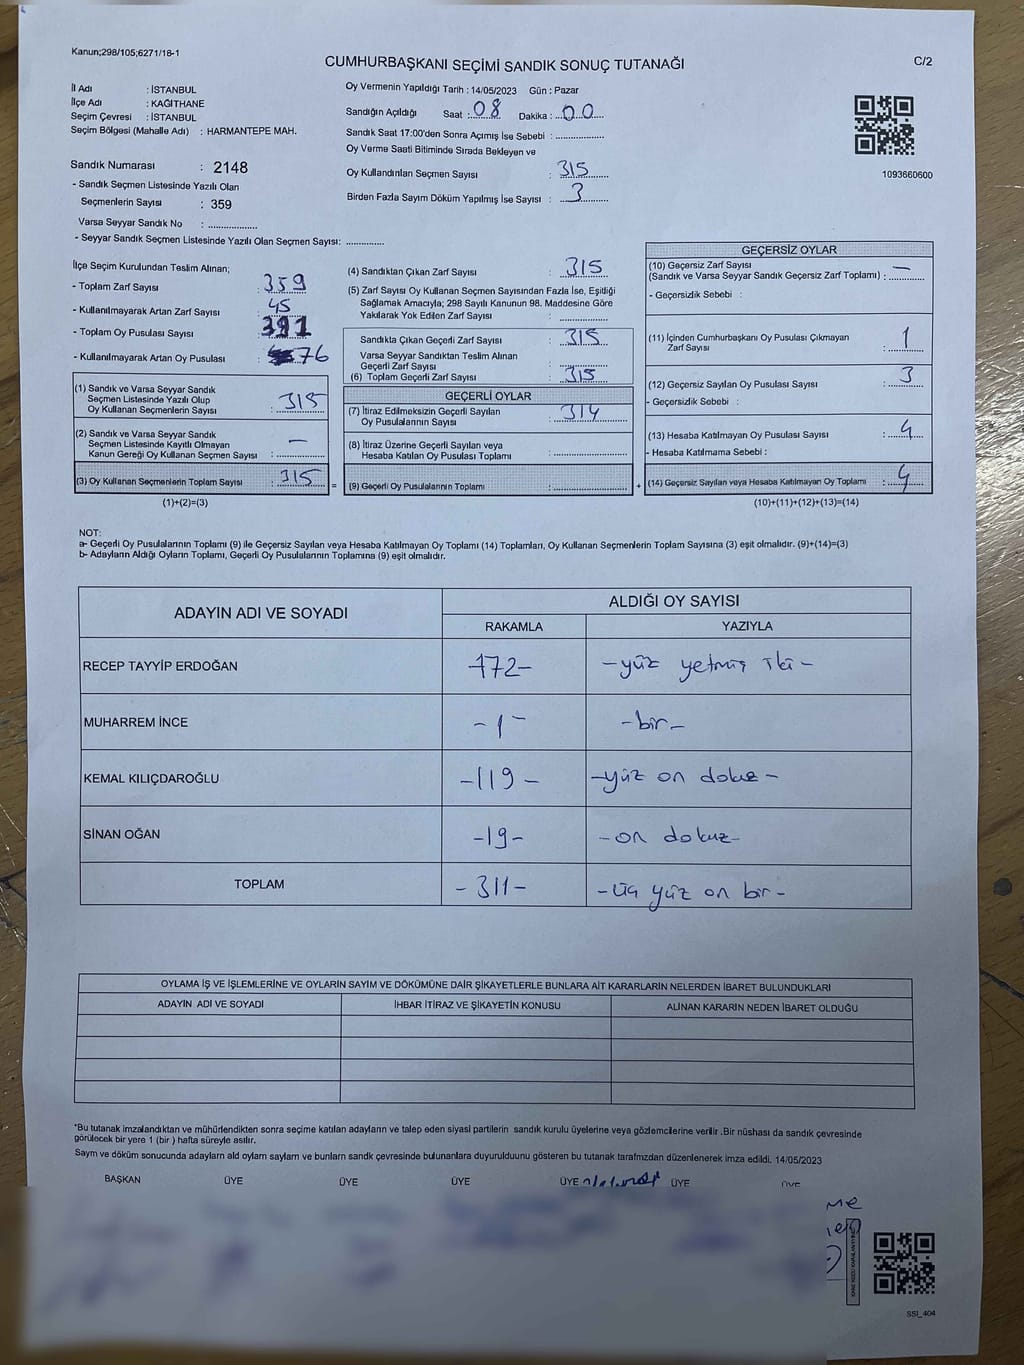 Kanun;298/105;6271/18-1
CUMHURBAŞKANI SEÇİMİ SANDIK SONUÇ TUTANAĞI
C/2
İl Adı : İSTANBUL
İlçe Adı : KAĞITHANE
Seçim Çevresi : İSTANBUL
Seçim Bölgesi (Mahalle Adı) : HARMANTEPE MAH.
Oy Vermenin Yapıldığı Tarih : 14/05/2023 Gün : Pazar
Sandığın Açıldığı Saat : 08 Dakika : 00
Sandık Saat 17:00'den Sonra Açımış İse Sebebi :
Oy Verme Saati Bitiminde Sırada Bekleyen ve
Oy Kullandırılan Seçmen Sayısı : 315
Birden Fazla Sayım Döküm Yapılmış İse Sayısı : 3
1093660600
Sandık Numarası : 2148
- Sandık Seçmen Listesinde Yazılı Olan
Seçmenlerin Sayısı : 359
Varsa Seyyar Sandık No :
- Seyyar Sandık Seçmen Listesinde Yazılı Olan Seçmen Sayısı:
İlçe Seçim Kurulundan Teslim Alınan;
- Toplam Zarf Sayısı : 359
- Kullanılmayarak Artan Zarf Sayısı : 45
- Toplam Oy Pusulası Sayısı : 391
- Kullanılmayarak Artan Oy Pusulası : 76
(1) Sandık ve Varsa Seyyar Sandık
Seçmen Listesinde Yazılı Olup
Oy Kullanan Seçmenlerin Sayısı : 315
(2) Sandık ve Varsa Seyyar Sandık
Seçmen Listesinde Kayıtlı Olmayan
Kanun Gereği Oy Kullanan Seçmen Sayısı : —
(3) Oy Kullanan Seçmenlerin Toplam Sayısı : 315
(1)+(2)=(3)
(4) Sandıktan Çıkan Zarf Sayısı : 315
(5) Zarf Sayısı Oy Kullanan Seçmen Sayısından Fazla İse, Eşitliği
Sağlamak Amacıyla; 298 Sayılı Kanunun 98. Maddesine Göre
Yakılarak Yok Edilen Zarf Sayısı :
Sandıkta Çıkan Geçerli Zarf Sayısı : 315
Varsa Seyyar Sandıktan Teslim Alınan
Geçerli Zarf Sayısı :
(6) Toplam Geçerli Zarf Sayısı : 315
GEÇERLİ OYLAR
(7) İtiraz Edilmeksizin Geçerli Sayılan
Oy Pusulalarının Sayısı : 314
(8) İtiraz Üzerine Geçerli Sayılan veya
Hesaba Katılan Oy Pusulası Toplamı :
= (9) Geçerli Oy Pusulalarının Toplamı : +
GEÇERSİZ OYLAR
(10) Geçersiz Zarf Sayısı
(Sandık ve Varsa Seyyar Sandık Geçersiz Zarf Toplamı) : —
- Geçersizlik Sebebi :
(11) İçinden Cumhurbaşkanı Oy Pusulası Çıkmayan
Zarf Sayısı : 1
(12) Geçersiz Sayılan Oy Pusulası Sayısı : 3
- Geçersizlik Sebebi :
(13) Hesaba Katılmayan Oy Pusulası Sayısı : 4
- Hesaba Katılmama Sebebi :
(14) Geçersiz Sayılan veya Hesaba Katılmayan Oy Toplamı : 4
(10)+(11)+(12)+(13)=(14)
NOT:
a- Geçerli Oy Pusulalarının Toplamı (9) ile Geçersiz Sayılan veya Hesaba Katılmayan Oy Toplamı (14) Toplamları, Oy Kullanan Seçmenlerin Toplam Sayısına (3) eşit olmalıdır. (9)+(14)=(3)
b- Adayların Aldığı Oyların Toplamı, Geçerli Oy Pusulalarının Toplamına (9) eşit olmalıdır.
ADAYIN ADI VE SOYADI
ALDIĞI OY SAYISI
RAKAMLA YAZIYLA
RECEP TAYYİP ERDOĞAN 172- -yüz yetmiş iki-
MUHARREM İNCE -1- -bir-
KEMAL KILIÇDAROĞLU -119- -yüz on dokuz-
SİNAN OĞAN -19- -on dokuz-
TOPLAM -311- -üç yüz on bir-
OYLAMA İŞ VE İŞLEMLERİNE VE OYLARIN SAYIM VE DÖKÜMÜNE DAİR ŞİKAYETLERLE BUNLARA AİT KARARLARIN NELERDEN İBARET BULUNDUKLARI
ADAYIN ADI VE SOYADI İHBAR İTİRAZ VE ŞİKAYETİN KONUSU ALINAN KARARIN NEDEN İBARET OLDUĞU
*Bu tutanak imzalandıktan ve mühürlendikten sonra seçime katılan adayların ve talep eden siyasi partilerin sandık kurulu üyelerine veya gözlemcilerine verilir .Bir nüshası da sandık çevresinde
görülecek bir yere 1 (bir ) hafta süreyle asılır.
Sayım ve döküm sonucunda adayların ald oyların sayıları ve bunların sandk çevresinde bulunanlara duyurulduunu gösteren bu tutanak tarafımzdan düzenlenerek imza edildi. 14/05/2023
BAŞKAN ÜYE ÜYE ÜYE ÜYE ÜYE ÜYE
SSI_404